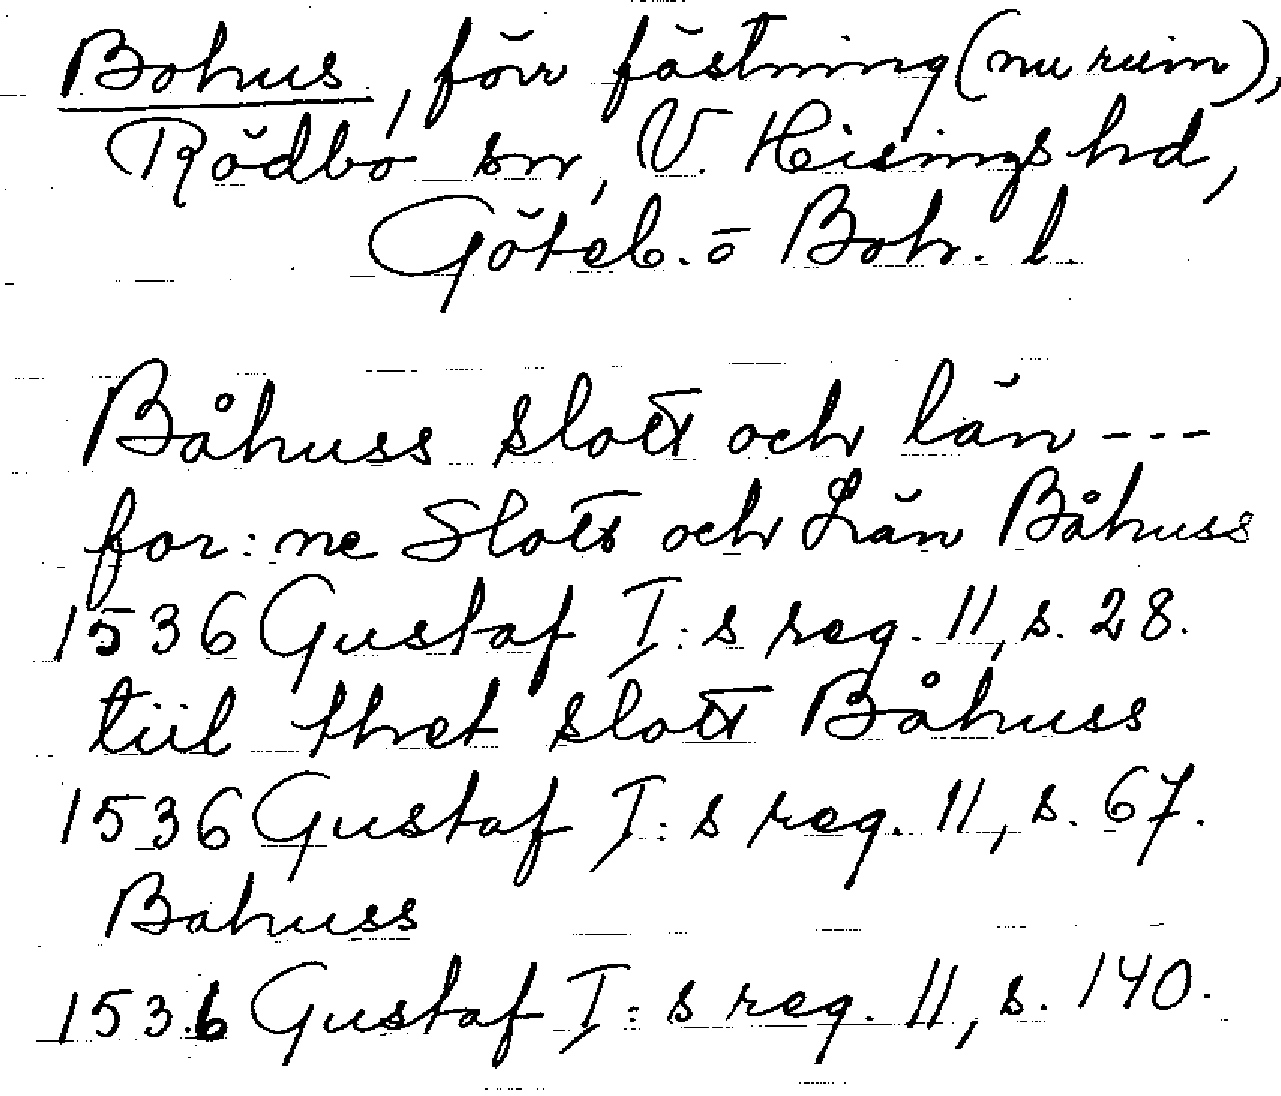 Bohus, förr fästning (nu ruin),
Rödbo sn, V. Hisings hd,
Göteb. o Boh. l.
Båhuss slott och län ---
for:ne Slott och Län Båhuss
1536 Gustaf I:s reg. 11, s. 28.
tiil thet slott Båhuss
1536 Gustaf I:s reg. 11, s. 67.
Bahuss
1536 Gustaf I:s reg. 11, s. 140.